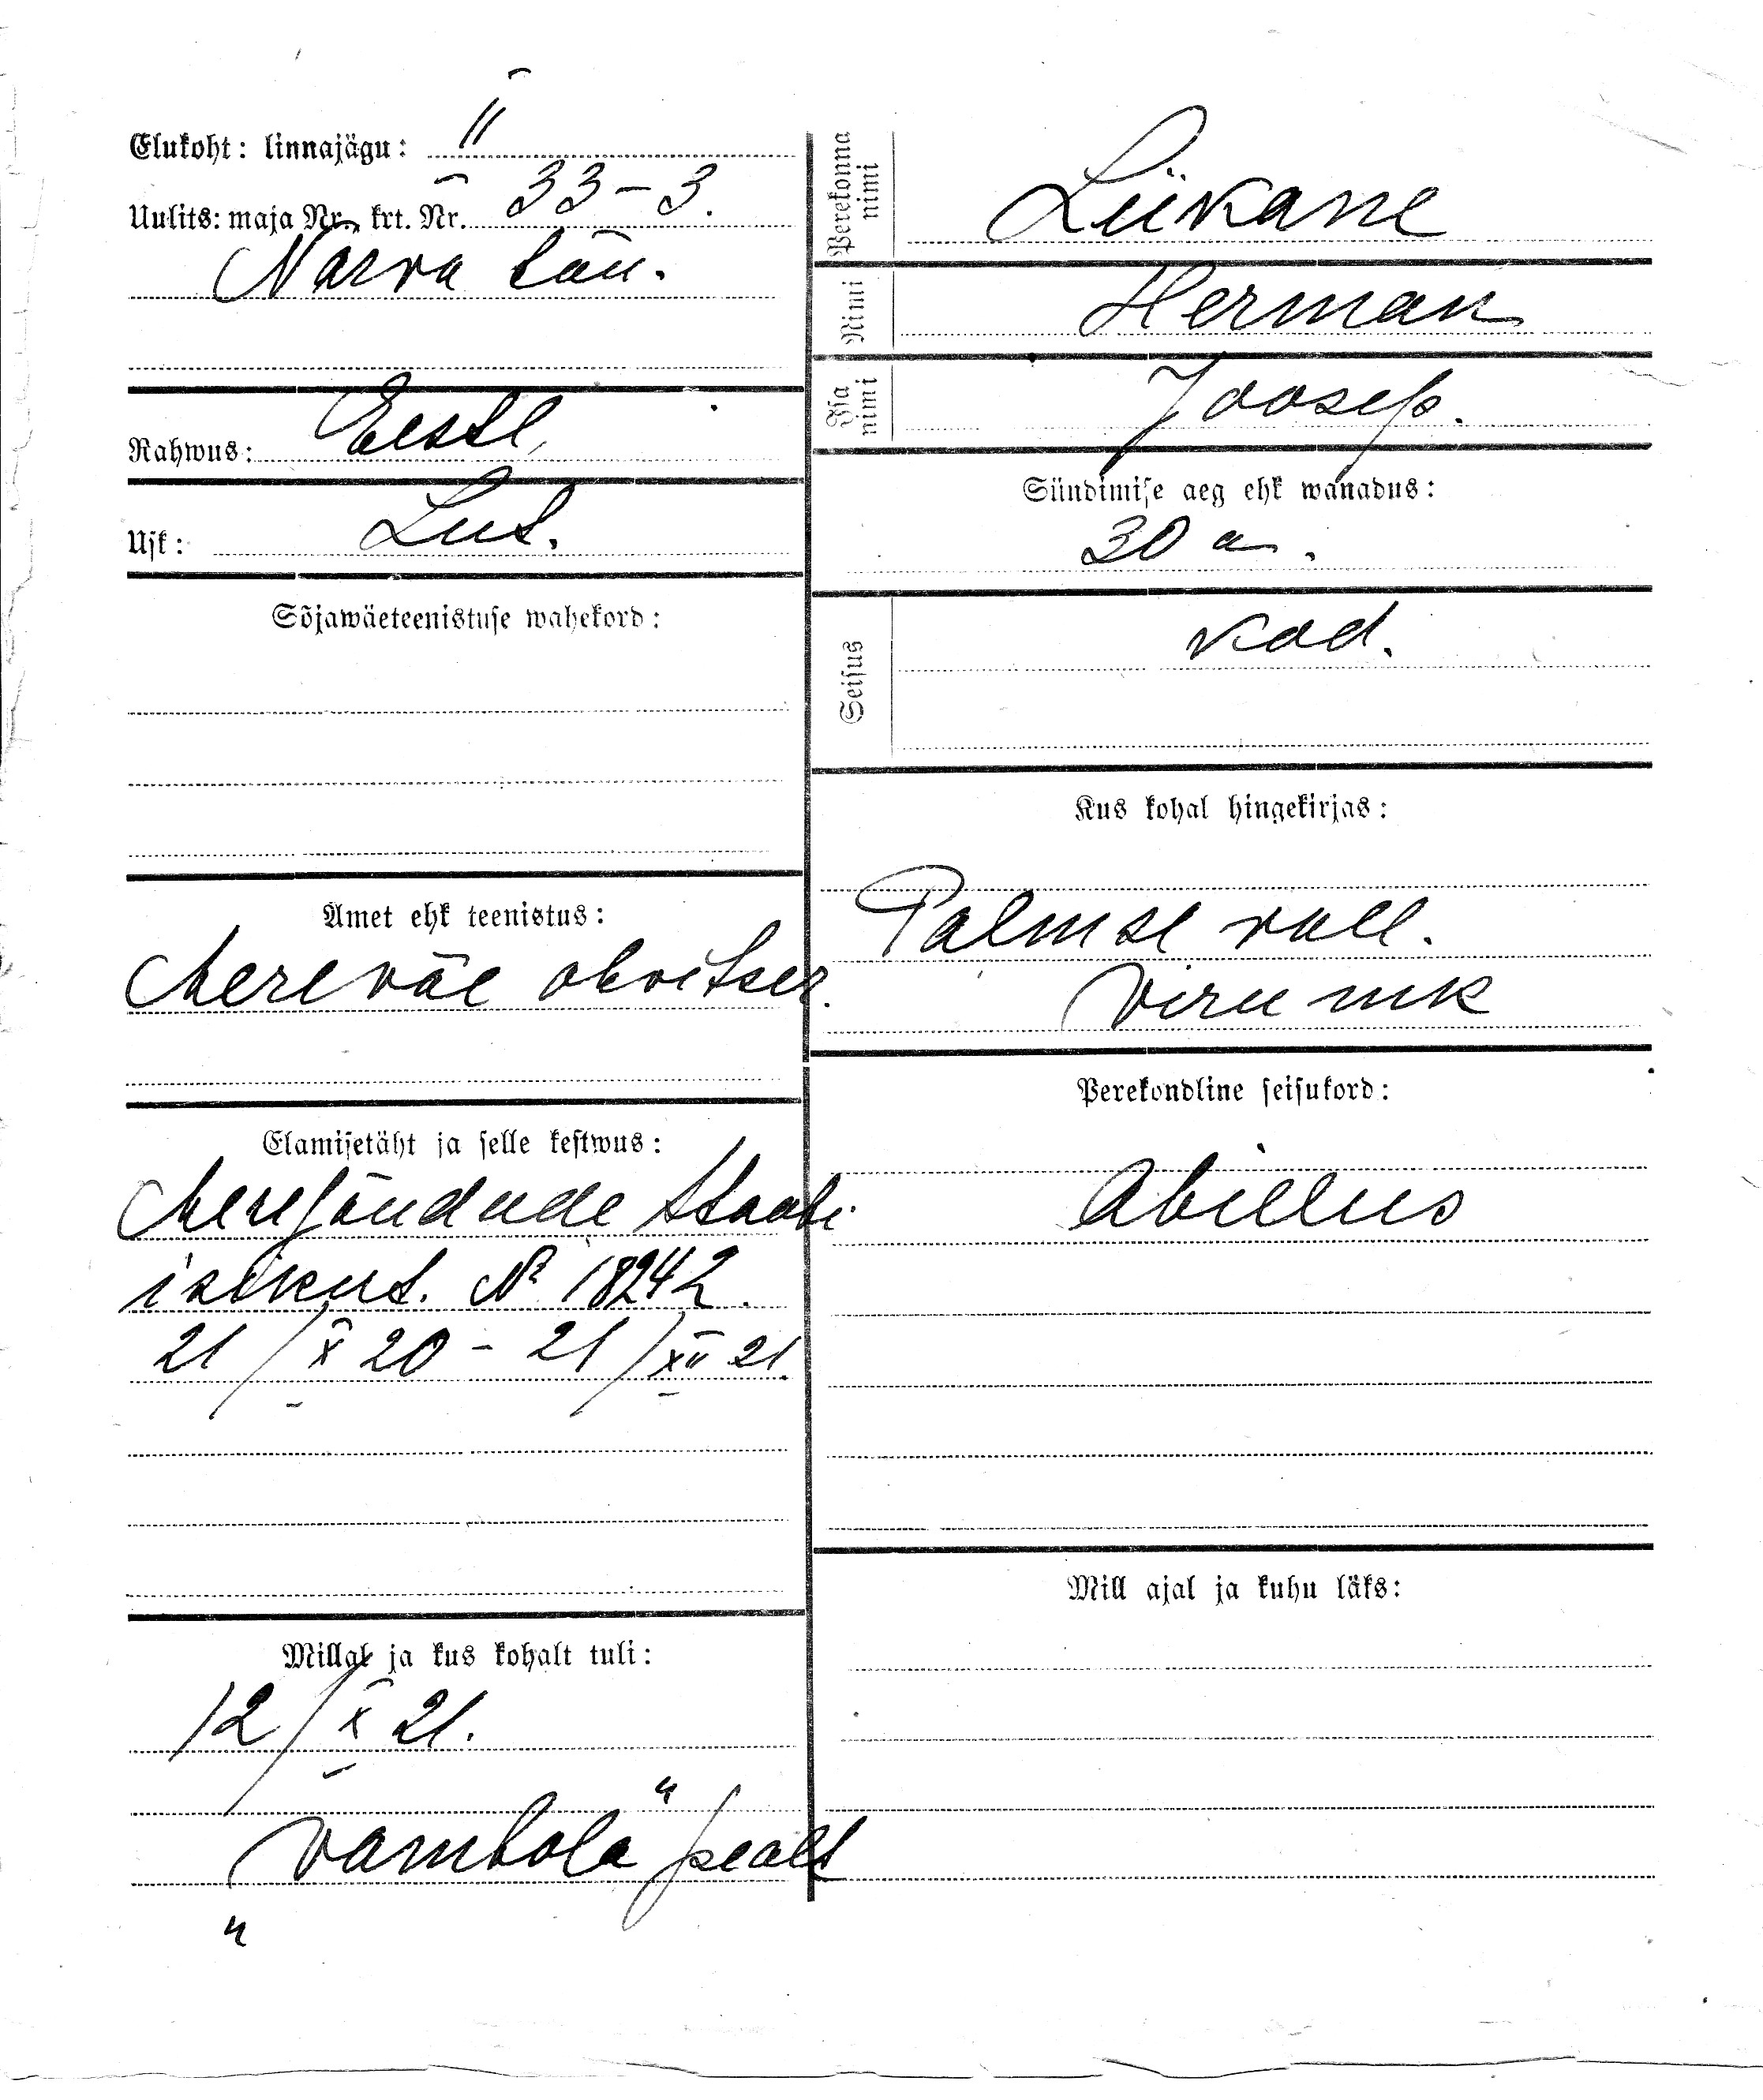 Elukoht: linnajägu: II
Uulits: maja Nr., krt. Nr. 33-3.
Narva tän.
Rahwus: Eestl.
Usk: Lut.
Sõjawäeteenistuse wahekord:
Amet ehk teenistus:
Mereväe ohvitser.
Elamisetäht ja selle kestwus:
Merejõudude staabi
isikut. № 18242.
21/X 20 - 21/XII 21.
Millal ja kus kohalt tuli:
12/X 21.
„Vambola" pealt
Perekonna nimi
Liikane
Nimi
Herman
Isa nimi
Joosep.
Sündimise aeg ehk wanadus:
30 a.
Seisus
kod.
Kus kohal hingekirjas:
Palmse vall.
Viru mk
Perekondline seisukord:
Abielus
Mill ajal ja kuhu läks: